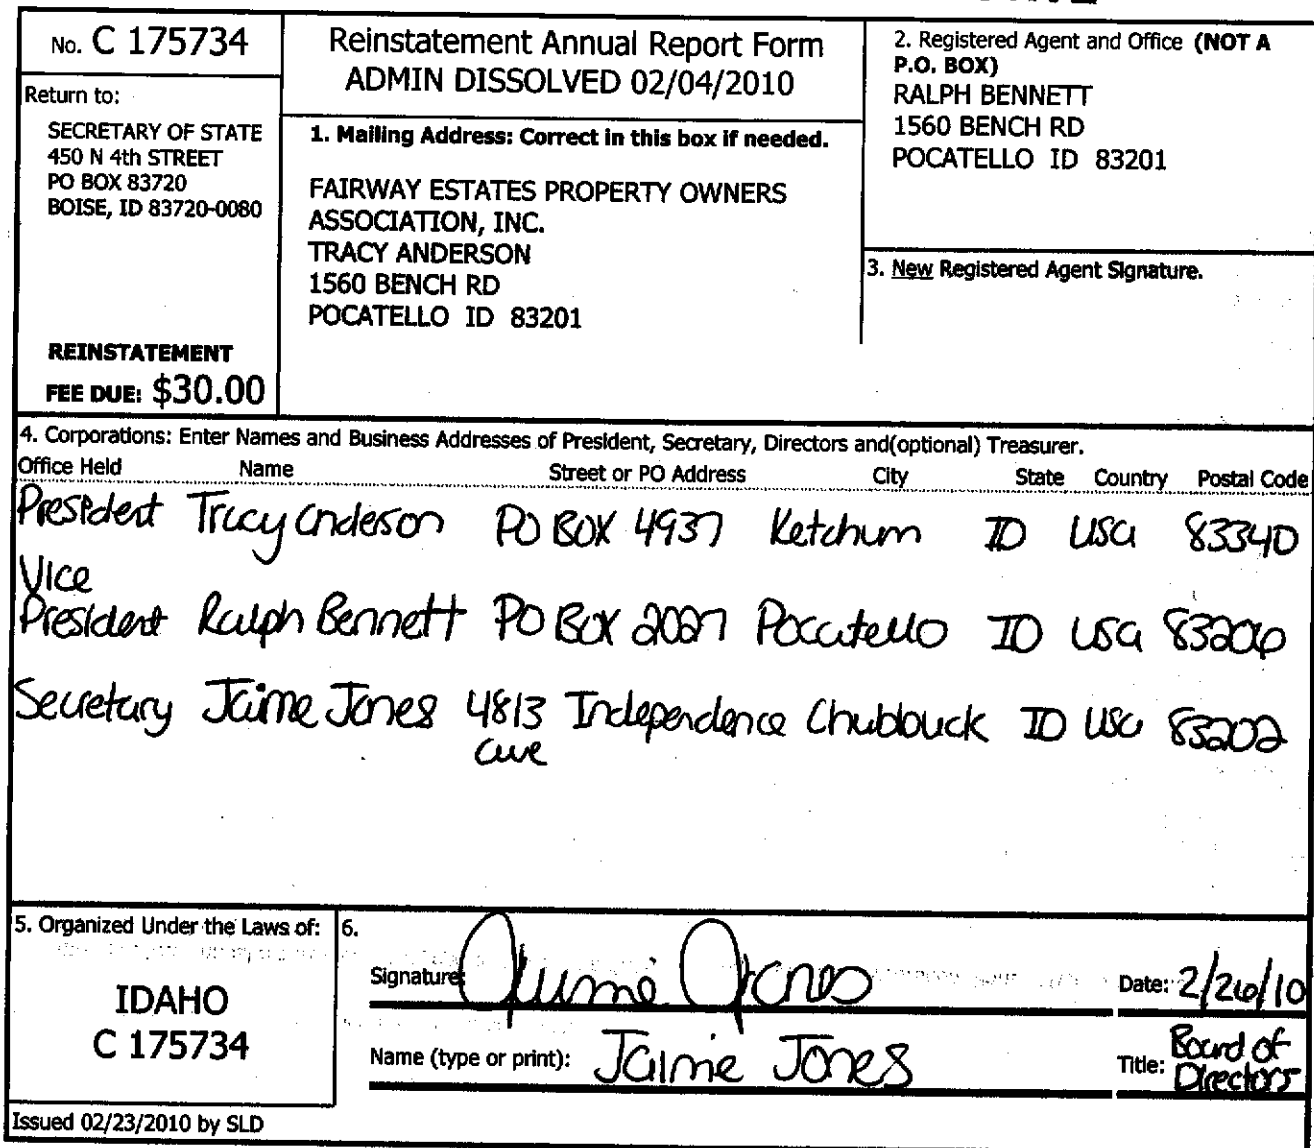 No. C 175734
Return to:
SECRETARY OF STATE
450 N 4th STREET
PO BOX 83720
BOISE, ID 83720-0080
REINSTATEMENT
FEE DUE: $30.00
Reinstatement Annual Report Form
ADMIN DISSOLVED 02/04/2010
1. Mailing Address: Correct in this box if needed.
FAIRWAY ESTATES PROPERTY OWNERS
ASSOCIATION, INC.
TRACY ANDERSON
1560 BENCH RD
POCATELLO ID 83201
2. Registered Agent and Office (NOT A
P.O. BOX)
RALPH BENNETT
1560 BENCH RD
POCATELLO ID 83201
3. New Registered Agent Signature.
4. Corporations: Enter Names and Business Addresses of President, Secretary, Directors and(optional) Treasurer.
Office Held Name Street or PO Address City State Country Postal Code
President Tracy anderson PO BOX 4937 Ketchum ID USa 83340
Vice
President Ralph Bennett PO BOX 2027 Pocatello ID USa 83206
Secretary Jaime Jones 4813 Independence Chubbuck ID USa 83202
ave
5. Organized Under the Laws of:
IDAHO
C 175734
6.
Signature: Jaime Jones Date: 2/26/10
Name (type or print): Jaime Jones Title: Board of
Directors
Issued 02/23/2010 by SLD